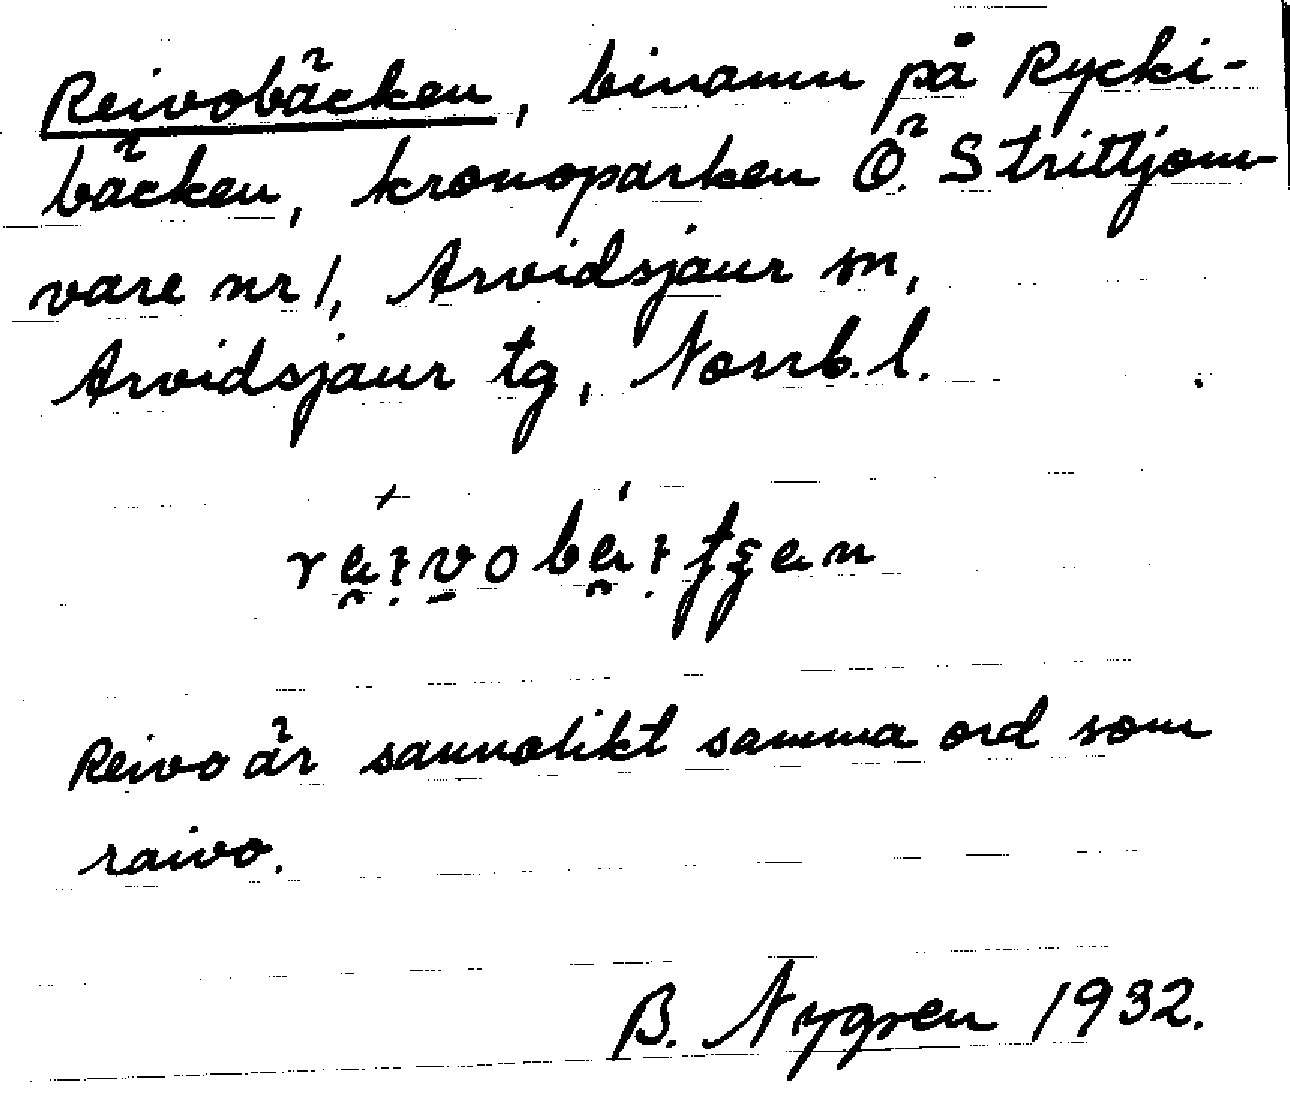 Reivobäcken, binamn på Rycki-
bäcken, kronoparken Ö. Strittjom-
vare nr 1, Arvidsjaur sn,
Arvidsjaur tg, Norrb. l.
Reivo är sannolikt samma ord som
raivo.
B. Nygren 1932.